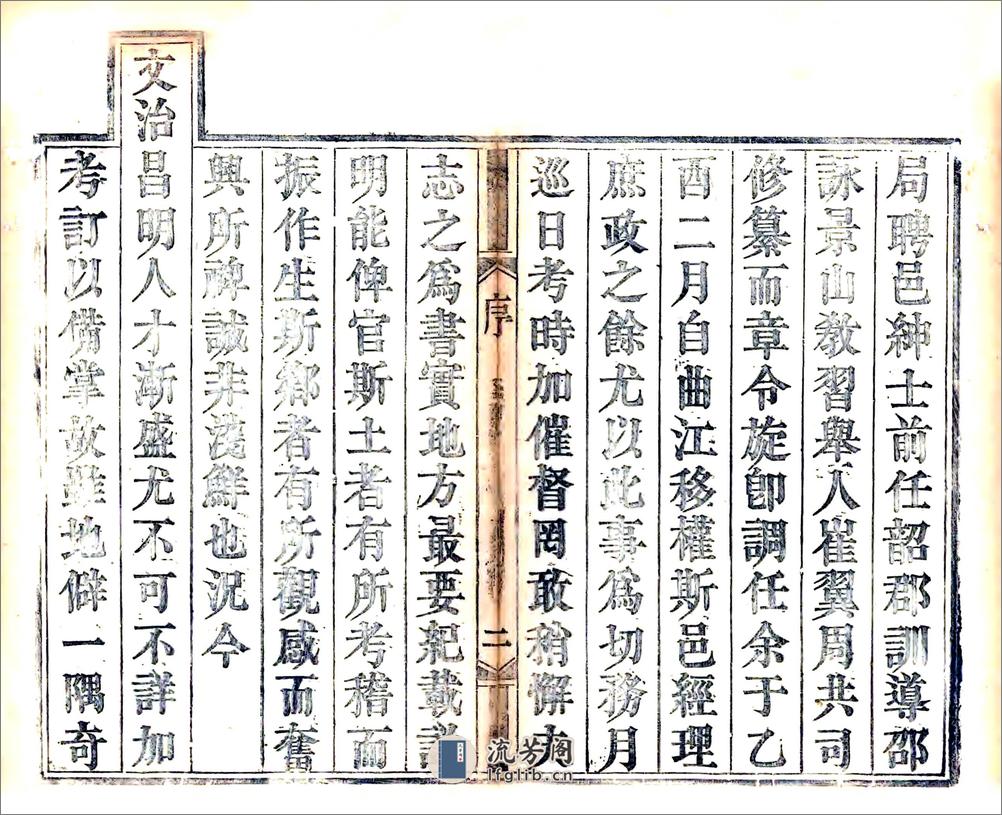 局聘邑紳士前任韶郡訓導邵
詠景山教習舉人崔翼周共司
修纂而章令旋卽調任余于乙
酉二月自曲江移權斯邑經理
庶政之餘尤以此事為切務月
巡日考時加催督罔敢稍懈夫
序
二
志之為書實地方最要紀載詳
明能俾官斯土者有所考稽而
振作生斯鄉者有所觀感而奮
興所裨誠非淺鮮也況今
文治昌明人才漸盛尤不可不詳加
考訂以備掌故雖地僻一隅奇
流芳阁
lfglib.cn